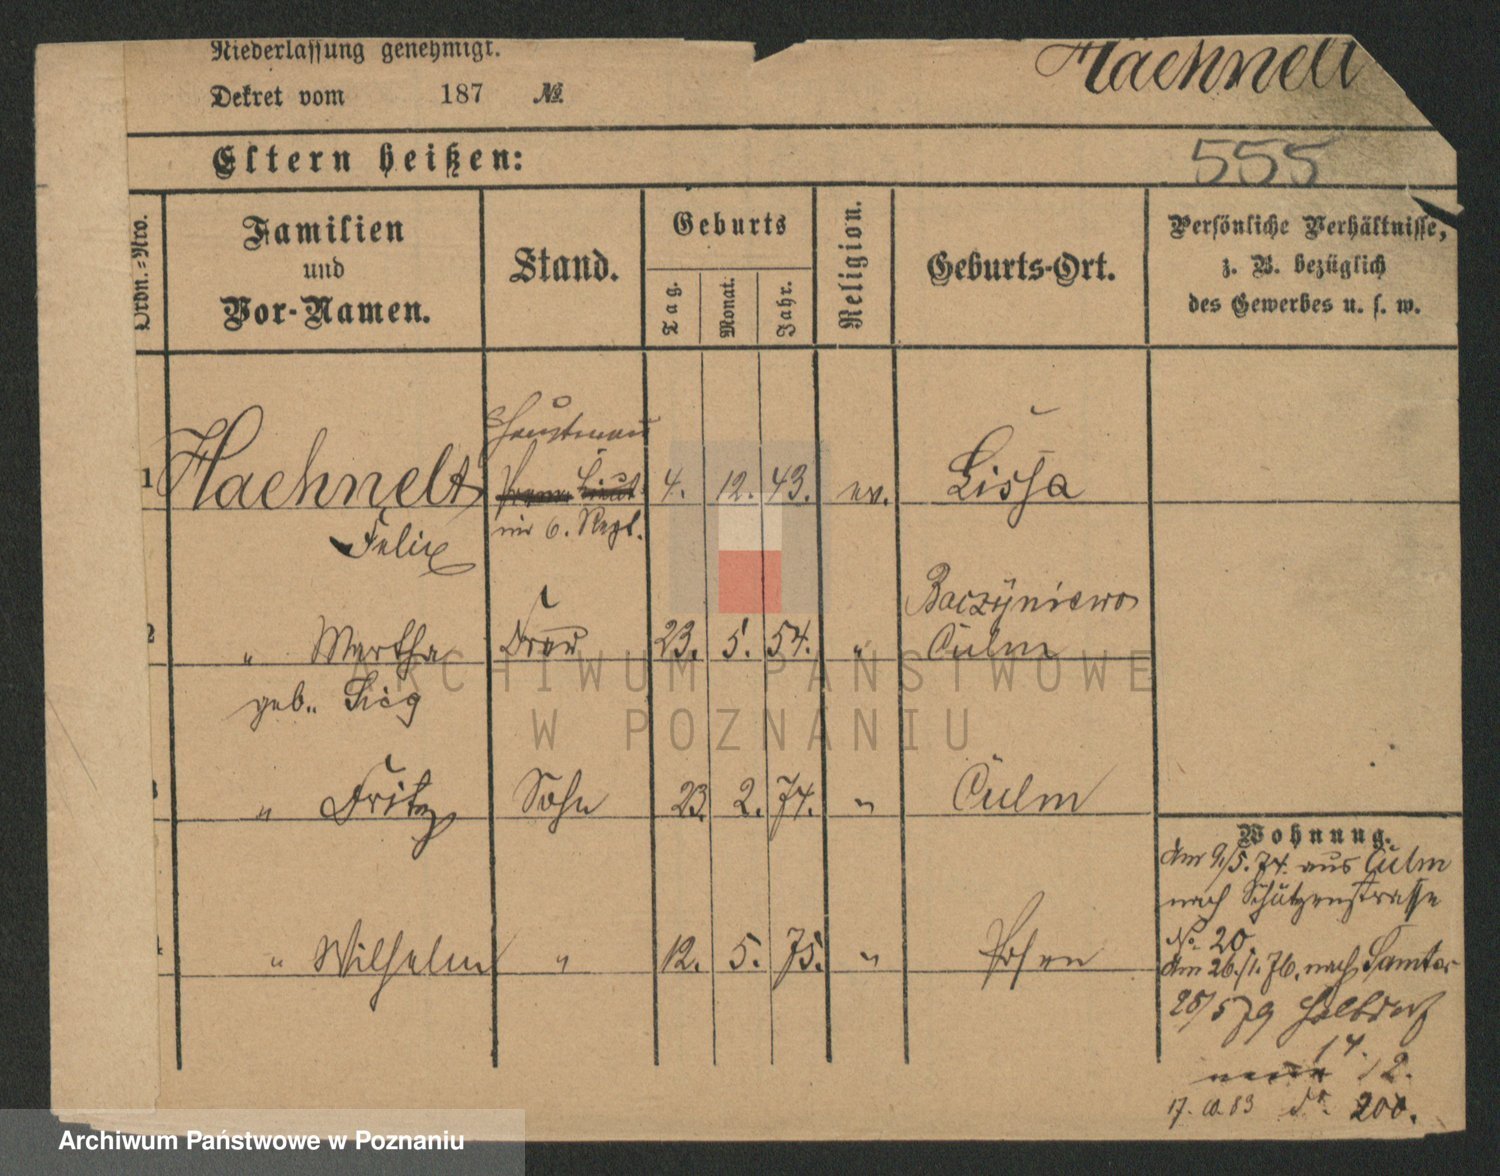 Niederlassung genehmigt.
Dekret vom 187 №
Haehnelt
Eltern heißen:
555
Ordn.-Nro.
Familien
und
Vor-Namen.
Stand.
Geburts
Tag.
Monat.
Jahr.
Religion.
Geburts-Ort.
Persönliche Verhältnisse,
z. B. bezüglich
des Gewerbes u. s. w.
Hauptmann
1 Haehnelt Prem. Lieut 4. 12. 43. ev. Lissa
Felix im 6. Regt.
Baczyniewo
2 " Martha Frau 23. 5. 54. " Culm
geb. Sieg
3 " Fritz Sohn 23. 2. 74. " Culm
4 " Wilhelm " 12. 5. 75. " Posen
Wohnung.
Am 9/5. 74. aus Culm
nach Schützenstrasse
No 20.
Am 26./1. 76. nach Samter
25/5 79 Halbdorf
14.
12.
17. 10. 83 do. 200.
ARCHIWUM PAŃSTWOWE
W POZNANIU
Archiwum Państwowe w Poznaniu